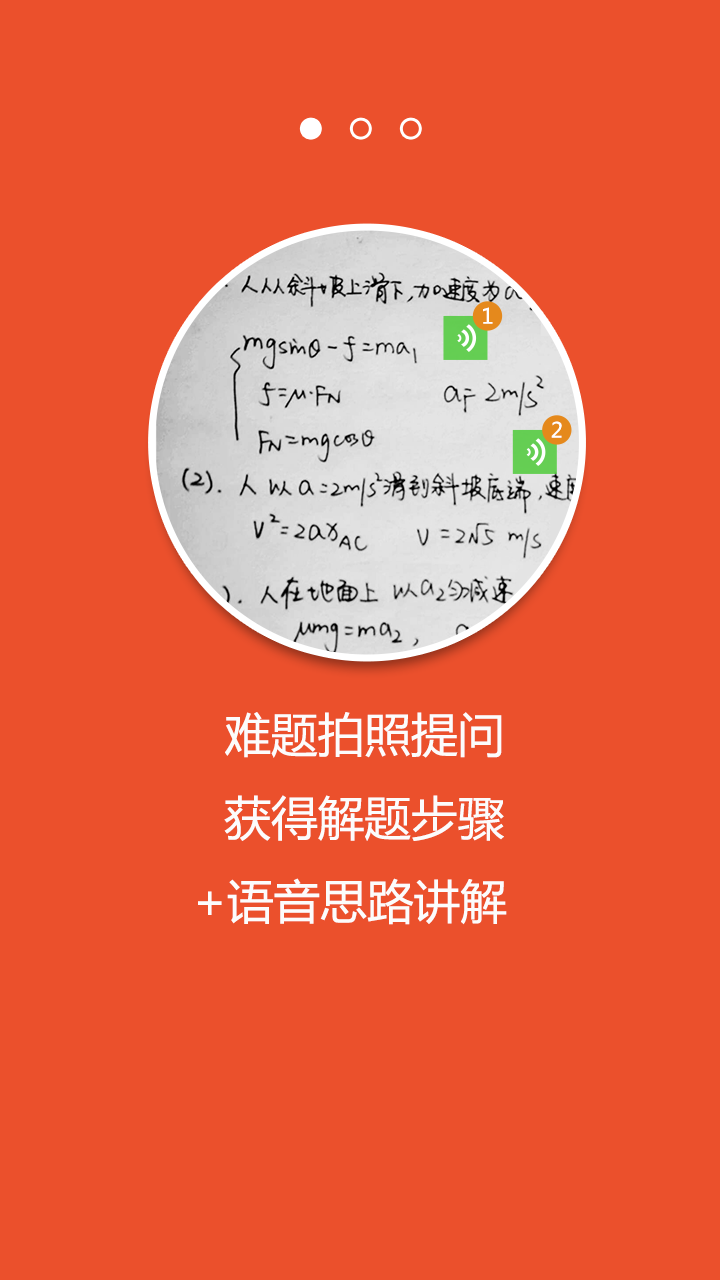 人从斜坡上滑下,加速度为a
1
mgsinθ-f=ma₁
f=μ·F_N a₁=2m/s²
2
F_N=mgcosθ
(2). 人以a=2m/s²滑到斜坡底端,速度
V²=2ax_AC V=2√5 m/s
). 人在地面上 以a₂匀减速
μmg=ma₂,
难题拍照提问
获得解题步骤
+语音思路讲解